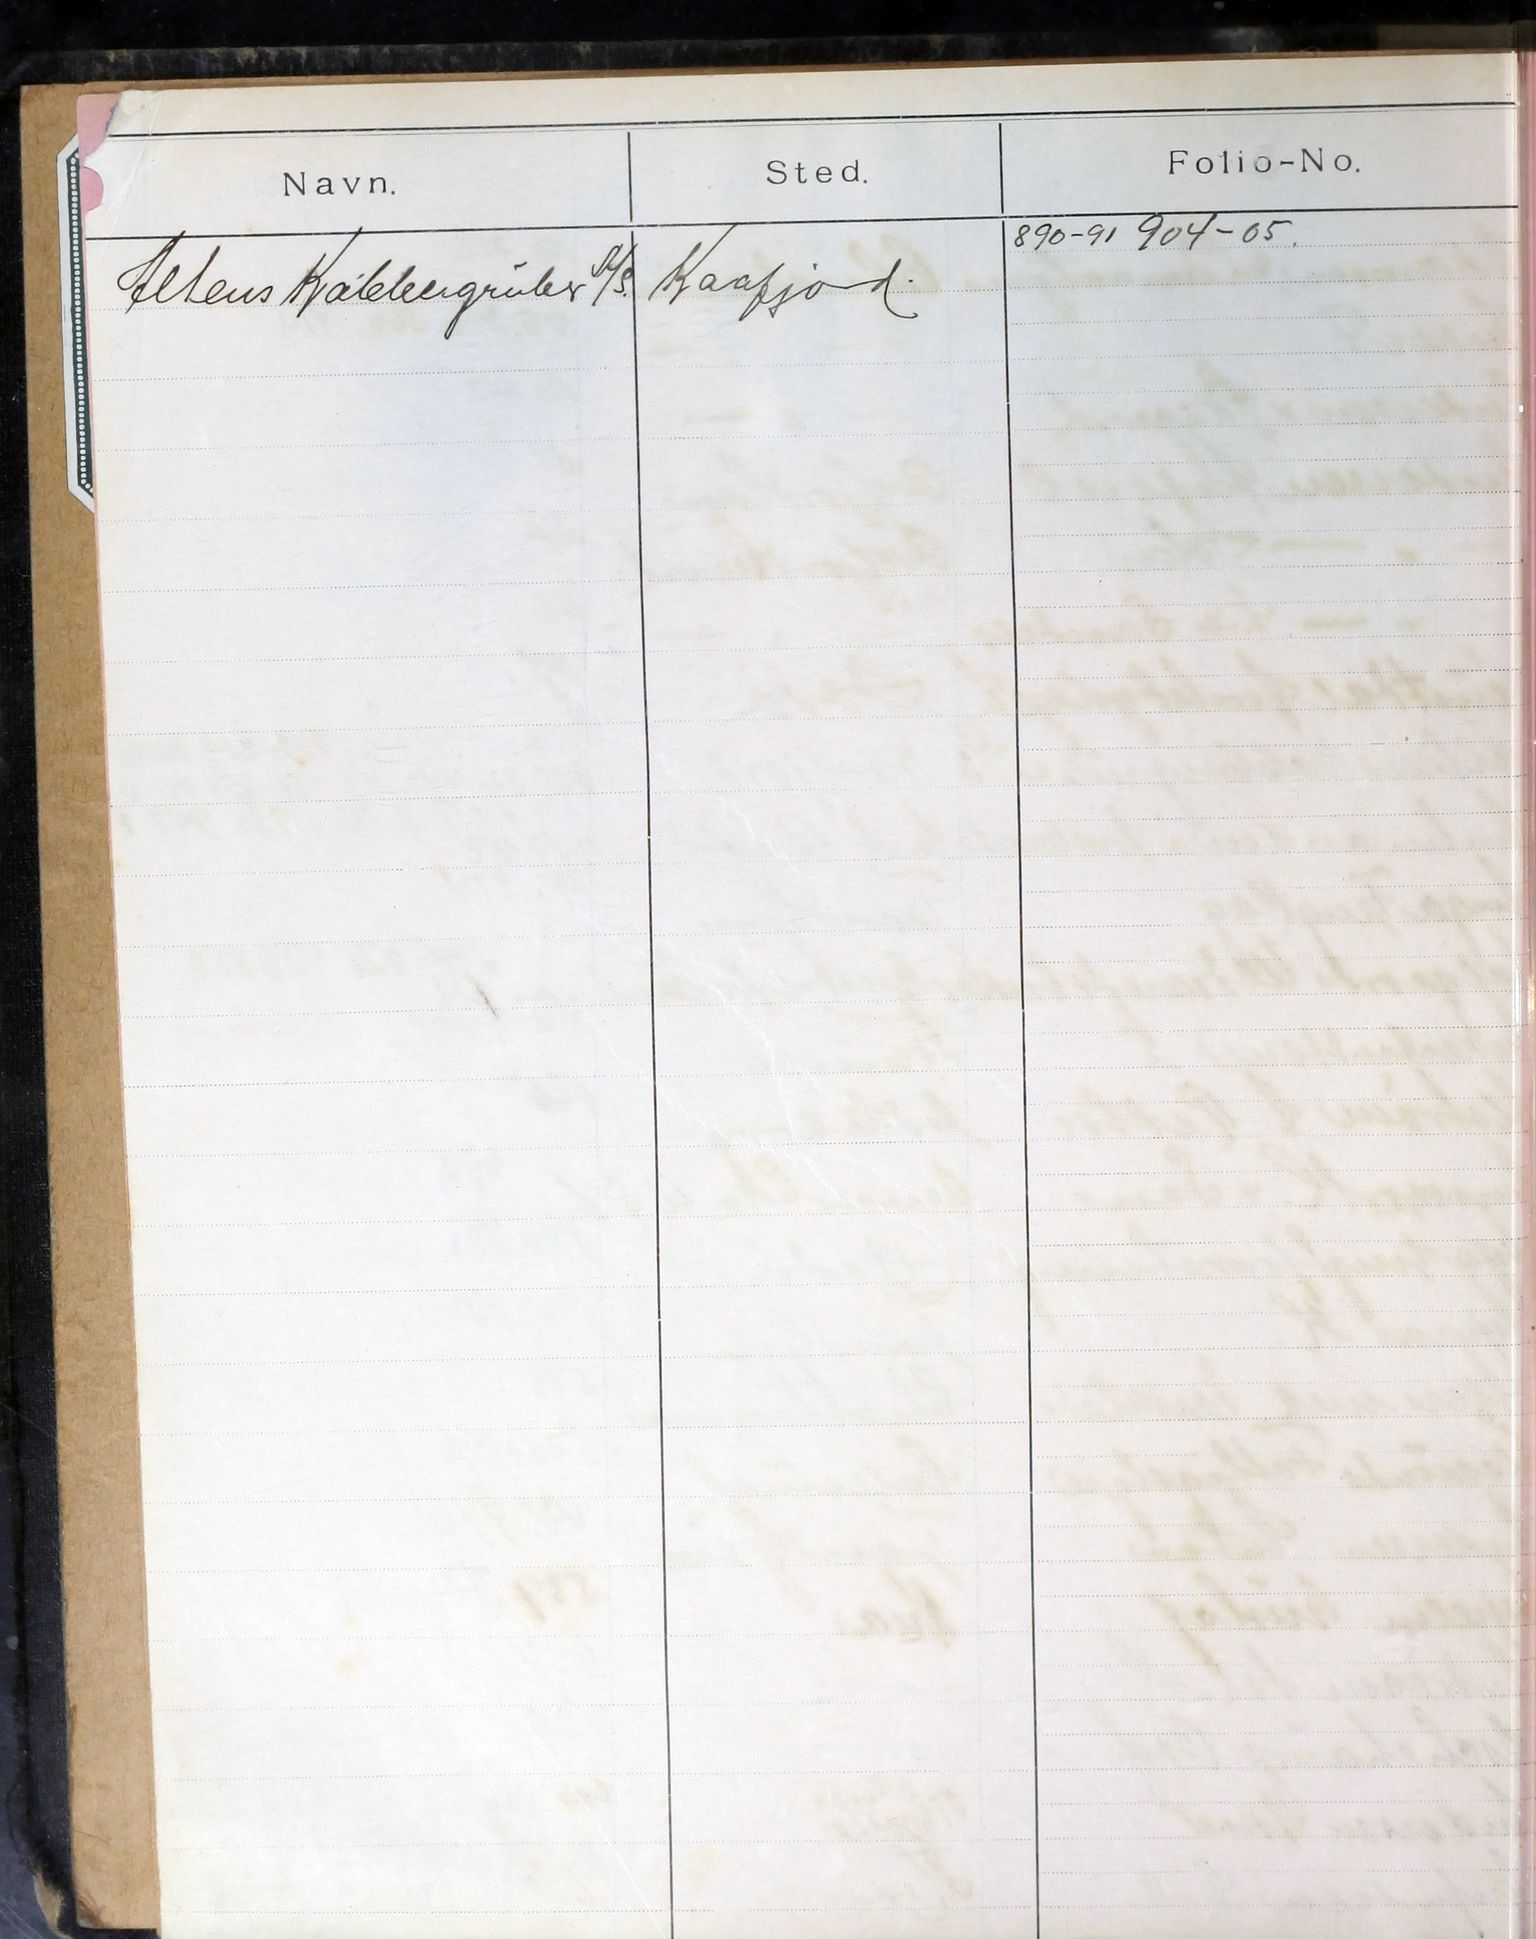 Navn. Sted. Folio-No.
890-91 904-05.
Altens Kobbergruber A/S. Kaafjord.